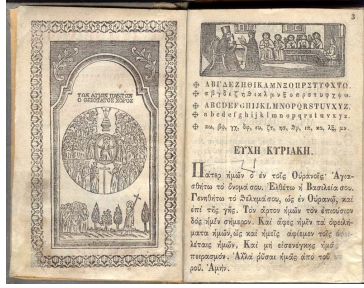 ΤΩΝ ΑΓΙΩΝ ΠΑΝΤΩΝ
Ο ΘΕΙΟΤΑΤΟΣ ΧΟΡΟΣ
3
ΑΒΓΔΕΖΗΘΙΚΛΜΝΞΟΠΡΣΤΥΦΧΨΩ
αβγδεζηθικλμνξοπρστυφχψω
ABCDEFGHIJKLMNOPQRSTUVXYZ.
abcdefghijklmnopqrstuvxyz.
ΕΥΧΗ ΚΥΡΙΑΚΗ.
Πατερ ἡμῶν ὁ ἐν τοῖς Οὐρανοῖς· Ἁγια-
σθήτω τὸ ὄνομά σου. Ἐλθέτω ἡ Βασιλεία σου.
Γενηθήτω τὸ Θέλημά σου, ὡς ἐν Οὐρανῷ, καὶ
ἐπὶ τῆς γῆς. Τὸν ἄρτον ἡμῶν τὸν ἐπιούσιον
δὸς ἡμῖν σήμερον. Καὶ ἄφες ἡμῖν τὰ ὀφειλή-
ματα ἡμῶν, ὡς καὶ ἡμεῖς ἀφίεμεν τοῖς ὀφει-
λέταις ἡμῶν. Καὶ μὴ εἰσενέγκῃς ἡμᾶς
πειρασμόν. Ἀλλὰ ῥῦσαι ἡμᾶς ἀπὸ τοῦ
ροῦ. Ἀμήν.